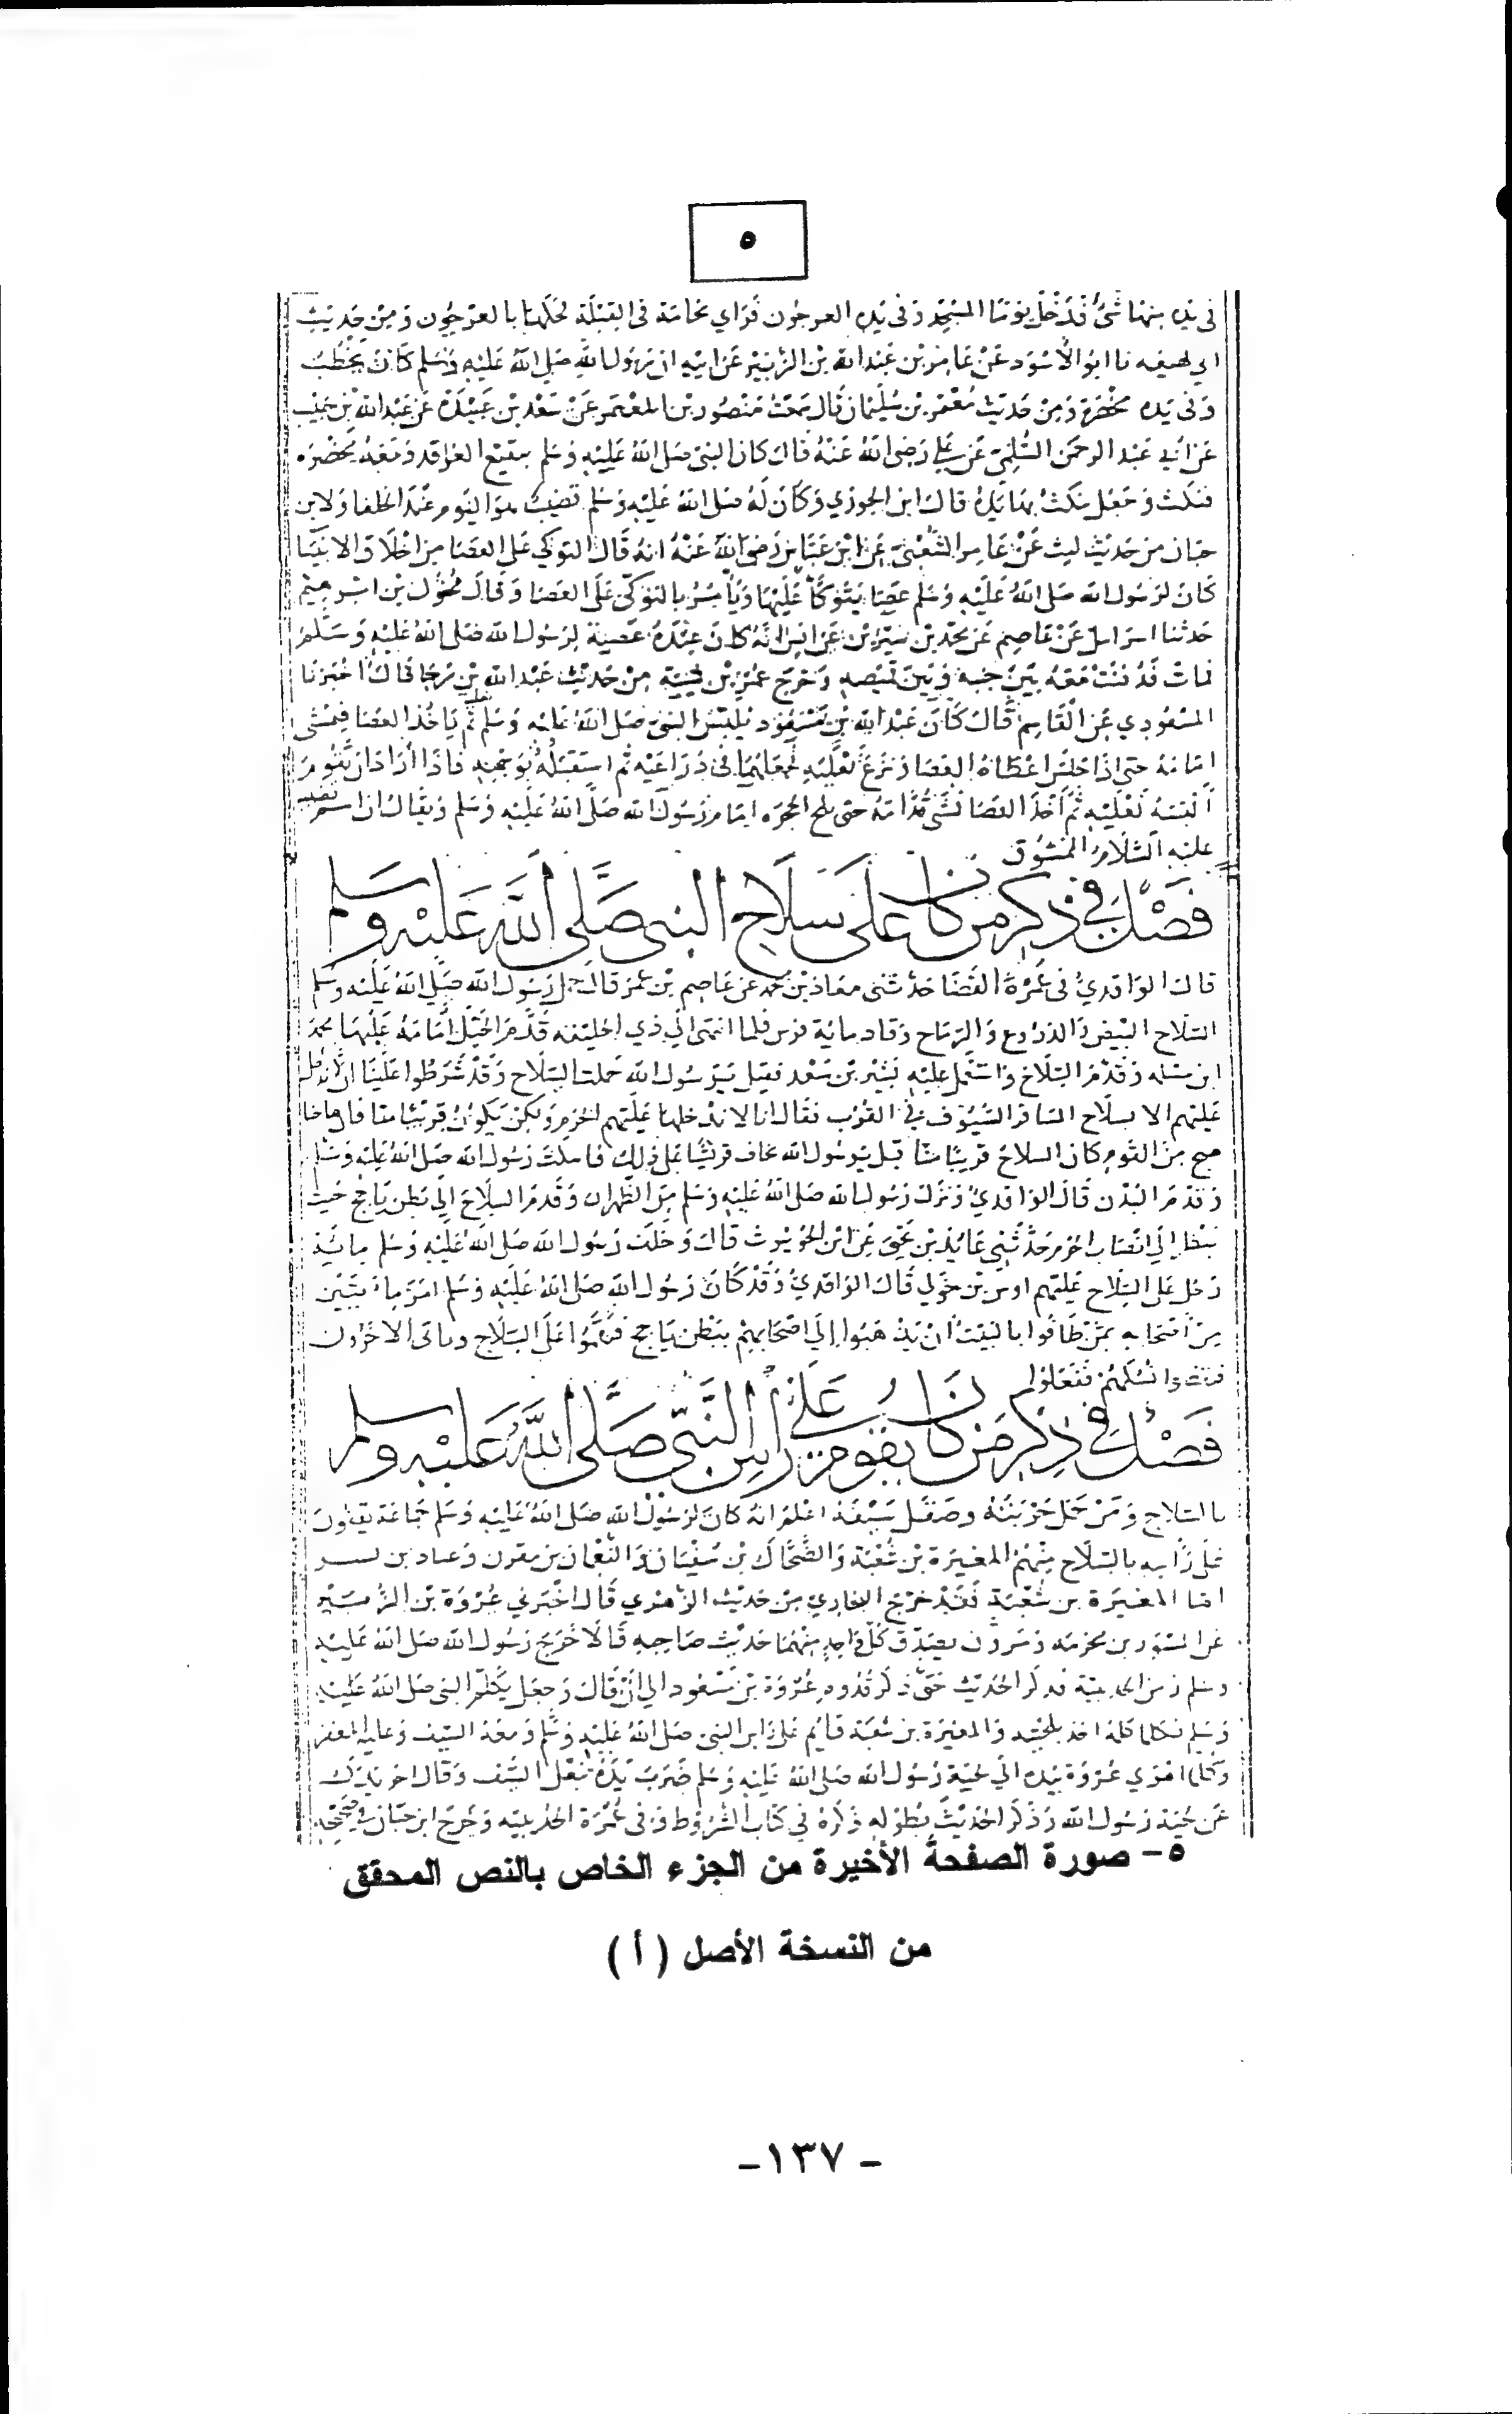 ٥
في يده منها شئ فدخل يوما المسجد وفي يده العرجون فراي نخامة في القبلة فحكها بالعرجون ومن حديث
ابي لهيعه نا ابو الاسود عن عامر بن عبد الله بن الزبير عن ابيه ان رسول الله صلى الله عليه وسلم كان يخطب
وفي يده مخصرة ومن حديث معتمر بن سليمان قال سمعت منصور بن المعتمر عن سعد بن عبيدة عن عبد الله بن حبيب
عن ابي عبد الرحمن السلمي عن علي رضي الله عنه قال كان النبي صلى الله عليه وسلم ببقيع الغرقد ومعه مخصره
فنكت وجعل ينكت بها يده قال ابن الجوزي وكان له صلى الله عليه وسلم قضيب هو اليوم عند الخلفا ولابن
حبان من حديث ليث عن عامر الشعبي عن ابن عباس رضي الله عنه انه قال التوكي على العصا من اخلاق الانبيا
كان لرسول الله صلى الله عليه وسلم عصا يتوكأ عليها ويأمر بالتوكي على العصا وقال مخول بن ابرهيم
حدثنا اسرايل عن عاصم عن محمد بن سيرين عن انس انه كان عنده عصية لرسول الله صلى الله عليه وسلم
فمات فدفنت معه بين جنبه وبين قميصه وخرج من حديث عبد الله بن رجا قال اخبرنا
المسعودي عن القاسم قال كان عبد الله بن مسعود يلبس النبي صلى الله عليه وسلم نعليه ثم ياخذ العصا فيمشي
امامه حتى اذا جلس اعطاه العصا ونزع نعليه فجعلهما في ذراعيه ثم استقبله بوجهه فاذا أراد ان يقوم
ألبسه نعليه ثم أخذ العصا فمشى قدامه حتى يلج الحجره امام رسول الله صلى الله عليه وسلم ويقال ان اسم قضيبه
عليه السلام الممشوق
فصل في ذكر من كان على سلاح النبي صلى الله عليه وسلم
قال الواقدي في عمرة القضا حدثني معاذ بن محمد عن عاصم بن عمر قال حمل رسول الله صلى الله عليه وسلم
السلاح البيض والدروع والرماح وقاد ماية فرس فلما انتهى الي ذي الحليفه قدم الخيل أمامه عليها محمد
ابن مسلمه وقدم السلاح واستعمل عليه بشير بن سعد فقيل يرسول الله حملت السلاح وقد شرطوا علينا ان لا ندخل
عليهم الا بسلاح المسافر السيوف في القرب فقال انا لا ندخلها عليهم الحرم ولكن يكون قريبا منا فان هاجنا
هيج من القوم كان السلاح قريبا منا قيل يرسول الله تخاف قريشا على ذلك فاسكت رسول الله صلى الله عليه وسلم
وقدم البدن قال الواقدي ونزل رسول الله صلى الله عليه وسلم مر الظهران وقدم السلاح الي بطن ياجج حيث
ينظر الي انصاب الحرم حدثني عايذ بن يحيى عن ابن الحويرث قال وخلف رسول الله صلى الله عليه وسلم مائتي
رجل على السلاح عليهم اوس بن خولي قال الواقدي وقد كان رسول الله صلى الله عليه وسلم امر مائتين
من أصحابه ممن طافوا بالبيت أن يذهبوا إلى اصحابهم ببطن ياجج فيقيموا على السلاح وياتي الاخرون
فقضوا نسكهم ففعلوا
فصل في ذكر من كان يقوم على راس النبي صلى الله عليه وسلم
بالسلاح ومن حمل حربته وصقل سيفه اعلم انه كان لرسول الله صلى الله عليه وسلم جماعة يقفون
على راسه بالسلاح منهم المغيرة بن شعبة والضحاك بن سفيان والنعمان بن مقرن وعباد بن بشر
اما المغيرة بن شعبة فقد خرج البخاري من حديث الزهري قال اخبرني عروة بن الزبير
عن المسور بن مخرمه ومروان يصدق كل واحد منهما حديث صاحبه قالا خرج رسول الله صلى الله عليه
وسلم زمن الحديبية فذكر الحديث حتى ذكر قدوم عروة بن مسعود الي أن قال وجعل يكلم النبي صلى الله عليه
وسلم فكلما كلمه اخذ بلحيته والمغيرة بن شعبة قايم على راس النبي صلى الله عليه وسلم ومعه السيف وعليه المغفر
وكلما اهوي عروة بيده الي لحية رسول الله صلى الله عليه وسلم ضرب يده بنعل السيف وقال اخر يدك
عن لحية رسول الله وذكر الحديث بطوله ذكره في كتاب الشروط وفي عمرة الحديبيه وخرج ابن حبان في صحيحه
٥- صورة الصفحة الأخيرة من الجزء الخاص بالنص المحقق
من النسخة الأصل (أ)
- ١٣٧-